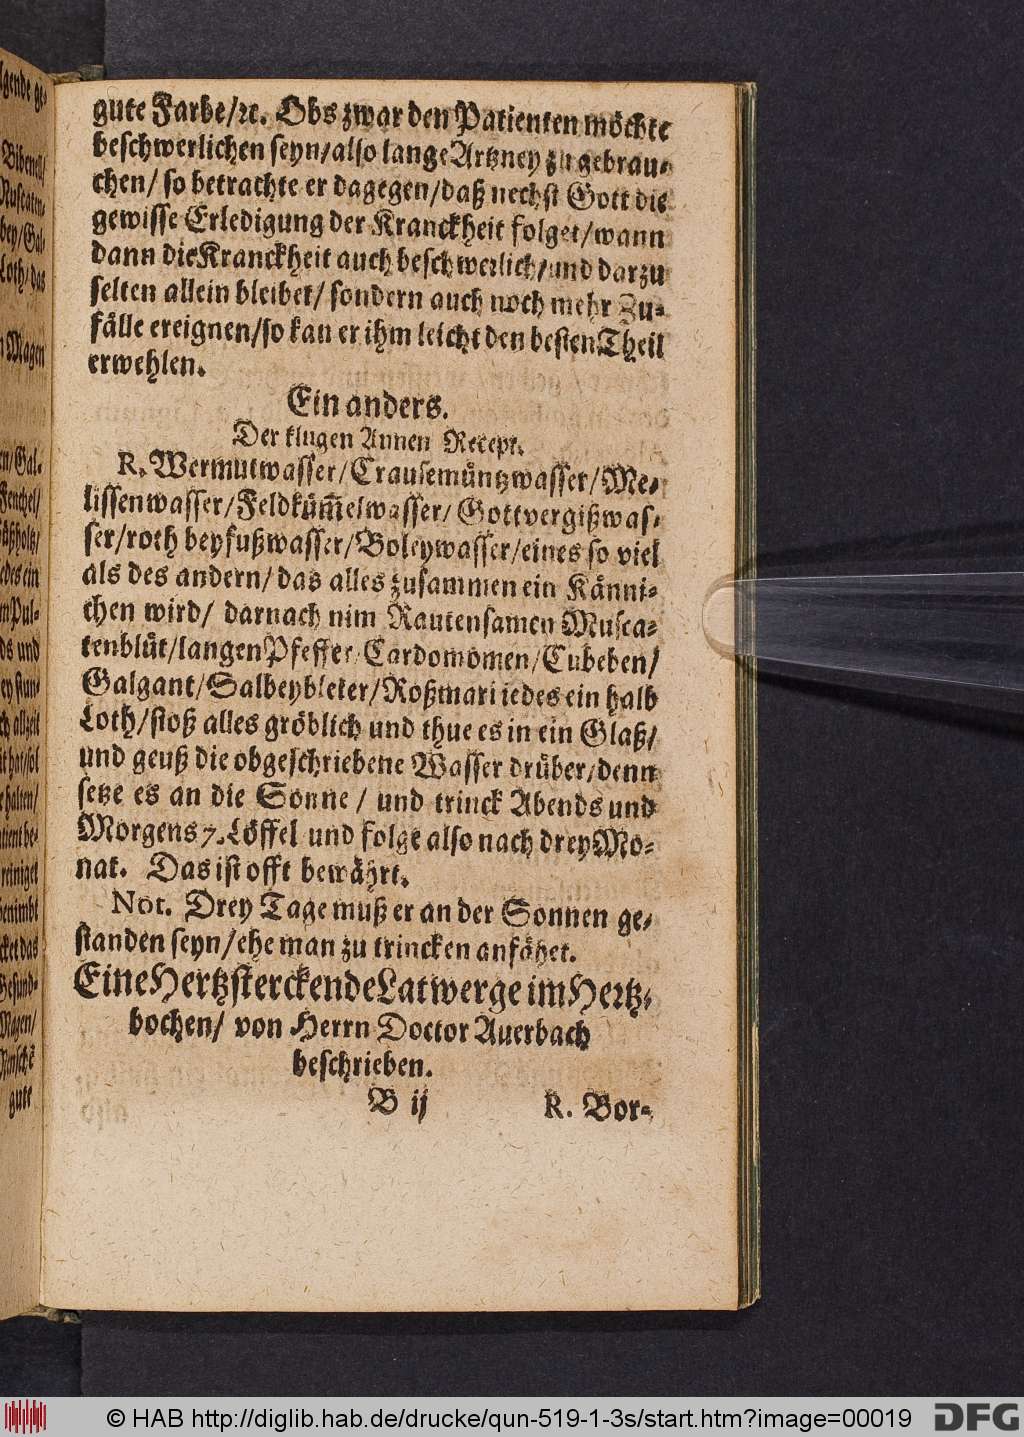 gute Farbe/ꝛc. Obs zwar den Patienten möchte
beschwerlichen seyn/also lange Artzney zu gebrau-
chen/ so betrachte er dagegen/daß nechst Gott die
gewisse Erledigung der Kranckheit folget/wann
dann die Kranckheit auch beschwerlich/und darzu
selten allein bleibet/ sondern auch noch mehr Zu-
fälle ereignen/so kan er ihm leicht den besten Theil
erwehlen.
Ein anders.
Der klugen Annen Recept.
R. Wermutwasser/Crausemüntzwasser/Me-
lissenwasser/Feldküm̃elwasser/Gottvergißwas-
ser/roth beyfußwasser/Boleywasser/eines so viel
als des andern/das alles zusammen ein Känni-
chen wird/ darnach nim Rautensamen Musca-
tenblüt/langen Pfeffer/Cardomomen/Cubeben/
Galgant/Salbeybleter/Roßmari iedes ein halb
Loth/stoß alles gröblich und thue es in ein Glaß/
und geuß die obgeschriebene Wasser drüber/denn
setze es an die Sonne/ und trinck Abends und
Morgens 7. Löffel und folge also nach drey Mo-
nat. Das ist offt bewährt.
Not. Drey Tage muß er an der Sonnen ge-
standen seyn/ehe man zu trincken anfähet.
Eine Hertzsterckende Latwerge im Hertz-
bochen/ von Herrn Doctor Auerbach
beschrieben.
B ij R. Bor-
lgende ge-
Bibenell/
Muscaten-
bey/Gal-
Loth/das
n Magen
en/Gal-
Fenchel/
üßholtz/
iedes ein
m Pul-
ds und
ey stun-
ch allzeit
it hat/sol
ehalten/
atient be-
reiniget
benimbt
cket das
Gesund-
Magen/
Mensche
gute
© HAB http://diglib.hab.de/drucke/qun-519-1-3s/start.htm?image=00019
DFG